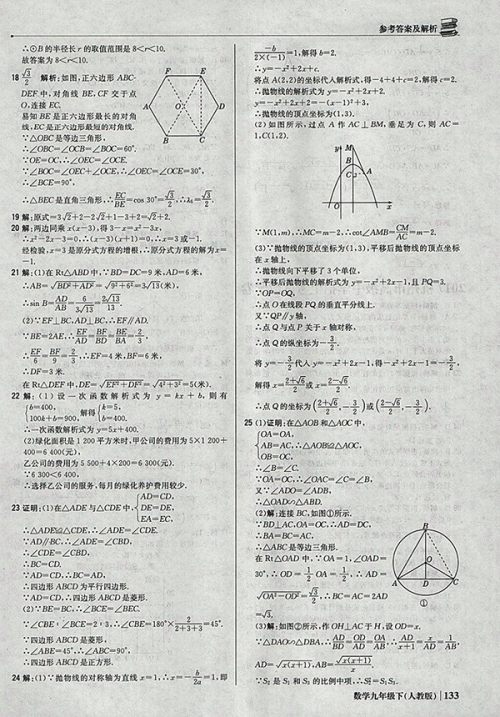 参考答案及解析
∴⊙B的半径长r的取值范围是8<r<10.
故答案为8<r<10.
18 √3/2 解析:如图,正六边形ABC-
DEF中,对角线BE,CF交于点
O,连接EC.
易知BE是正六边形最长的对角
线,EC是正六边形最短的对角线.
∵△OBC是等边三角形,
∴∠OBC=∠OCB=∠BOC=60°.
∵OE=OC,∴∠OEC=∠OCE.
∵∠BOC=∠OEC+∠OCE,∴∠OEC=∠OCE=30°,
∴∠BCE=90°,
∴△BEC是直角三角形,∴EC/BE=cos 30°=√3/2,∴λ₆=√3/2.
F E
A O D
B C
19 解:原式=3√2+2−2√2+1−3+2=√2+2.
20 解:两边同乘x(x−3),得3−x=x²−3x,
∴x²−2x−3=0,∴(x−3)(x+1)=0,∴x=3或−1.
经检验,x=3是原分式方程的增根,∴原分式方程的解为x=
−1.
21 解:(1)在Rt△ABD中,∵BD=DC=9米,AD=6米,
∴AB=√(BD²+AD²)=√(9²+6²)=3√13(米),
∴sin B=AD/AB=6/3√13=2√13/13.
(2)∵EF⊥BC,AD⊥BC,∴EF∥AD.
∵BE=2AE,∴EF/AD=BF/BD=BE/BA=2/3,
∴EF/6=BF/9=2/3,∴EF=4米,BF=6米,
∴DF=3米.
在Rt△DEF中,DE=√(EF²+DF²)=√(4²+3²)=5(米).
22 解:(1)设一次函数解析式为y=kx+b,则有
{b=400, 100k+b=900, 解得{k=5, b=400.
∴一次函数解析式为y=5x+400.
(2)绿化面积是1 200平方米时,甲公司的费用为5×1 200+
400=6 400(元),
乙公司的费用为5 500+4×200=6 300(元).
∵6 300<6 400,
∴选择乙公司的服务,每月的绿化养护费用较少.
23 证明:(1)在△ADE与△CDE中,{AD=CD, DE=DE, EA=EC,
∴△ADE≌△CDE,∴∠ADE=∠CDE.
∵AD∥BC,∴∠ADE=∠CBD,
∴∠CDE=∠CBD,
∴BC=CD.
∵AD=CD,∴BC=AD,
∴四边形ABCD为平行四边形.
∵AD=CD,∴四边形ABCD是菱形.
(2)∵BE=BC,∴∠BCE=∠BEC.
∵∠CBE∶∠BCE=2∶3,∴∠CBE=180°×2/(2+3+3)=45°.
∵四边形ABCD是菱形,
∴∠ABE=45°,∴∠ABC=90°,
∴四边形ABCD是正方形.
24 解:(1)∵抛物线的对称轴为直线x=1,∴x=−b/2a=1,即
−b/(2×(−1))=1,解得b=2.
∴y=−x²+2x+c.
将点A(2,2)的坐标代入解析式,得−4+4+c=2,解得c=2.
∴抛物线的解析式为y=−x²+2x+2.
y=−x²+2x+2=−(x−1)²+3,
∴抛物线的顶点坐标为(1,3).
(2)如图所示,过点A作AC⊥BM,垂足为C,则AC=
1,C(1,2).
y M
B
C A
O x
∵M(1,m),∴MC=m−2,∴cot∠AMB=CM/AC=m−2.
(3)∵抛物线的顶点坐标为(1,3),平移后抛物线的顶点坐标
在x轴上,
∴抛物线向下平移了3个单位,
∴平移后抛物线的解析式为y=−x²+2x−1,且PQ=3.
∵OP=OQ,
∴点O在线段PQ的垂直平分线上.
又∵QP∥y轴,
∴点Q与点P关于x轴对称,
∴点Q的纵坐标为−3/2.
将y=−3/2代入y=−x²+2x−1,得−x²+2x−1=−3/2,
解得x=(2+√6)/2或x=(2−√6)/2.
∴点Q的坐标为((2+√6)/2,−3/2)或((2−√6)/2,−3/2).
25 (1)证明:在△AOB和△AOC中,
{OA=OA, AB=AC,∴△AOB≌△AOC, OB=OC,
∴∠B=∠C.
∵OA=OC,∴∠OAC=∠C=∠B,
又∵∠ADO=∠ADB,
∴△OAD∽△ABD.
(2)解:连接BC,如图①所示.
∵BD⊥AC,OA=OC,∴AD=DC,
∴BA=BC=AC,
∴△ABC是等边三角形.
在Rt△OAD中,∵OA=1,∠OAD=
30°,∴OD=1/2 OA=1/2,∴AD=
√(OA²−OD²)=√3/2,∴BC=AC=2AD
=√3.
B
O
A D C
①
(3)解:如图②所示,作OH⊥AC于H,设OD=x,
∵△DAO∽△DBA,∴AD/BD=OD/AD=OA/AB,∴AD/(x+1)=x/AD=1/AB,
AD=√(x(x+1)),AB=√(x(x+1))/x.
∵S₂是S₁和S₃的比例中项,∴S₂²=S₁·S₃.
数学九年级下(人教版) 133